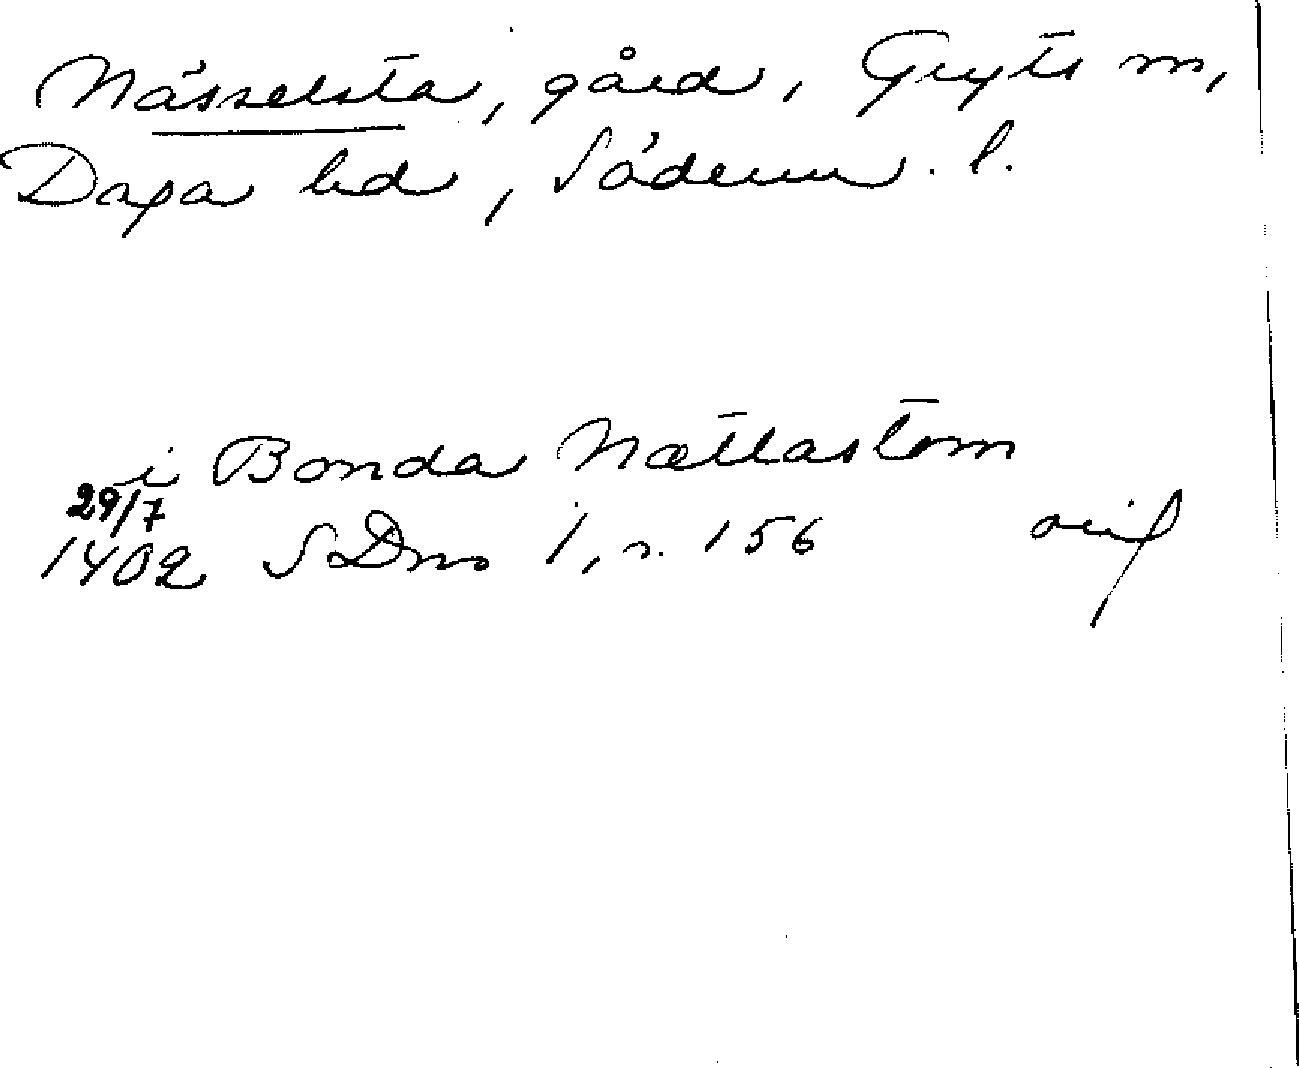 Nässelsta, gård, Gryts sn,
Daga hd, Söderm. l.
i Bonda Nætlastom
29/7
1402 SDns 1, s. 156 orig